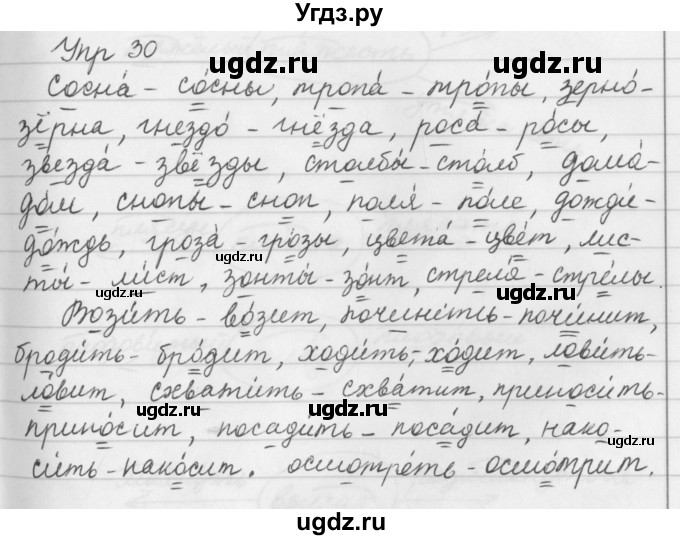 Угдз.ру
Упр 30
ugdz.ru ugdz.ru
Сосна́ - со́сны, тропа́ - тро́пы, зерно́-
зёрна, гнездо́ - гнёзда, роса́ - ро́сы,
ugdz.ru ugdz.ru
звезда́ - звёзды, столбы́ - столб, дома́-
дом, снопы́ - сноп, поля́ - по́ле, дожди́-
до́ждь, гроза́ - гро́зы, цвета́ - цве́т, лис-
ugdz.ru ugdz.ru
ты́ - ли́ст, зонты́ - зо́нт, стрела́ - стре́лы.
Вози́ть - во́зит, почини́ть - почи́нит,
броди́ть - бро́дит, ходи́ть, - хо́дит, лови́ть-
ло́вит, схвати́ть - схва́тит, приноси́ть-
ugdz.ru ugdz.ru
прино́сит, посади́ть - поса́дит, нако-
ugdz.ru
си́ть - нако́сит. осмотре́ть - осмо́трит.
ugdz.ru